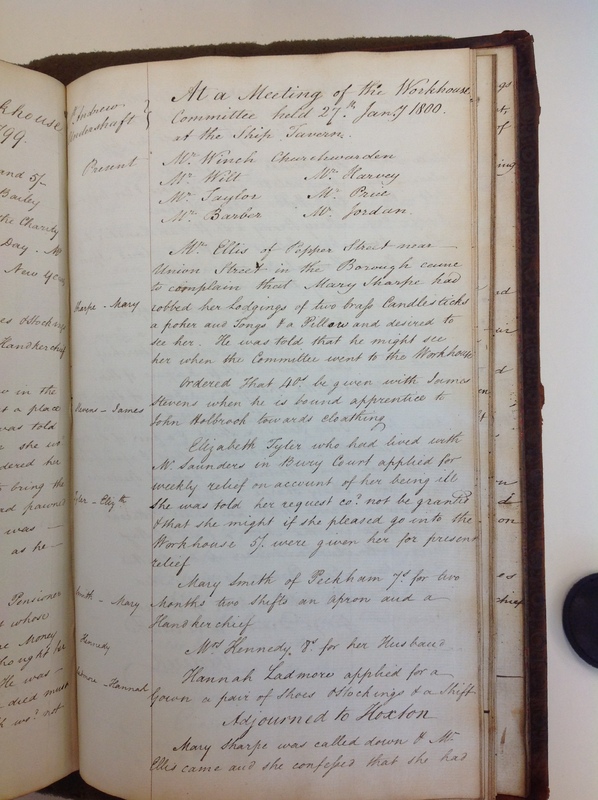 St Andrew
Undershaft
At a Meeting of the Workhouse
Committee held 27th Jany 1800.
at the Ship Tavern.
Present
Mr Winch Churchwarden
Mr Wilt Mr Harvey
Mr Taylor Mr Price
Mr Barber Mr Jordan.
Mr Ellis of Pepper Street near
Union Street in the Borough came
to complain that Mary Sharpe had
Sharpe - Mary
robbed her Lodgings of two brass Candlesticks
a poker and Tongs & a Pillow and desired to
see her. He was told that he might see
her when the Committee went to the Workhouse
Ordered That 40s. be given with James
Stevens - James
Stevens when he is bound apprentice to
John Holbrook towards cloathing
Elizabeth Tyler who had lived with
Mr Saunders in Bury Court applied for
weekly relief on account of her being ill
Tyler - Elizth
She was told her request cod. not be granted
& that she might if she pleased go into the
Workhouse 5/. were given her for present
relief
Mary Smith of Peckham 7s. for two
Smith - Mary
Months two Shifts an apron and a
Handkerchief
Kennedy
Mrs Kennedy, 8s. for her Husband
Ladmore - Hannah
Hannah Ladmore applied for a
Gown a pair of Shoes & Stockings & a Shift
Adjourned to Hoxton
Mary Sharpe was called down & Mr
Ellis came and she confessed that she had